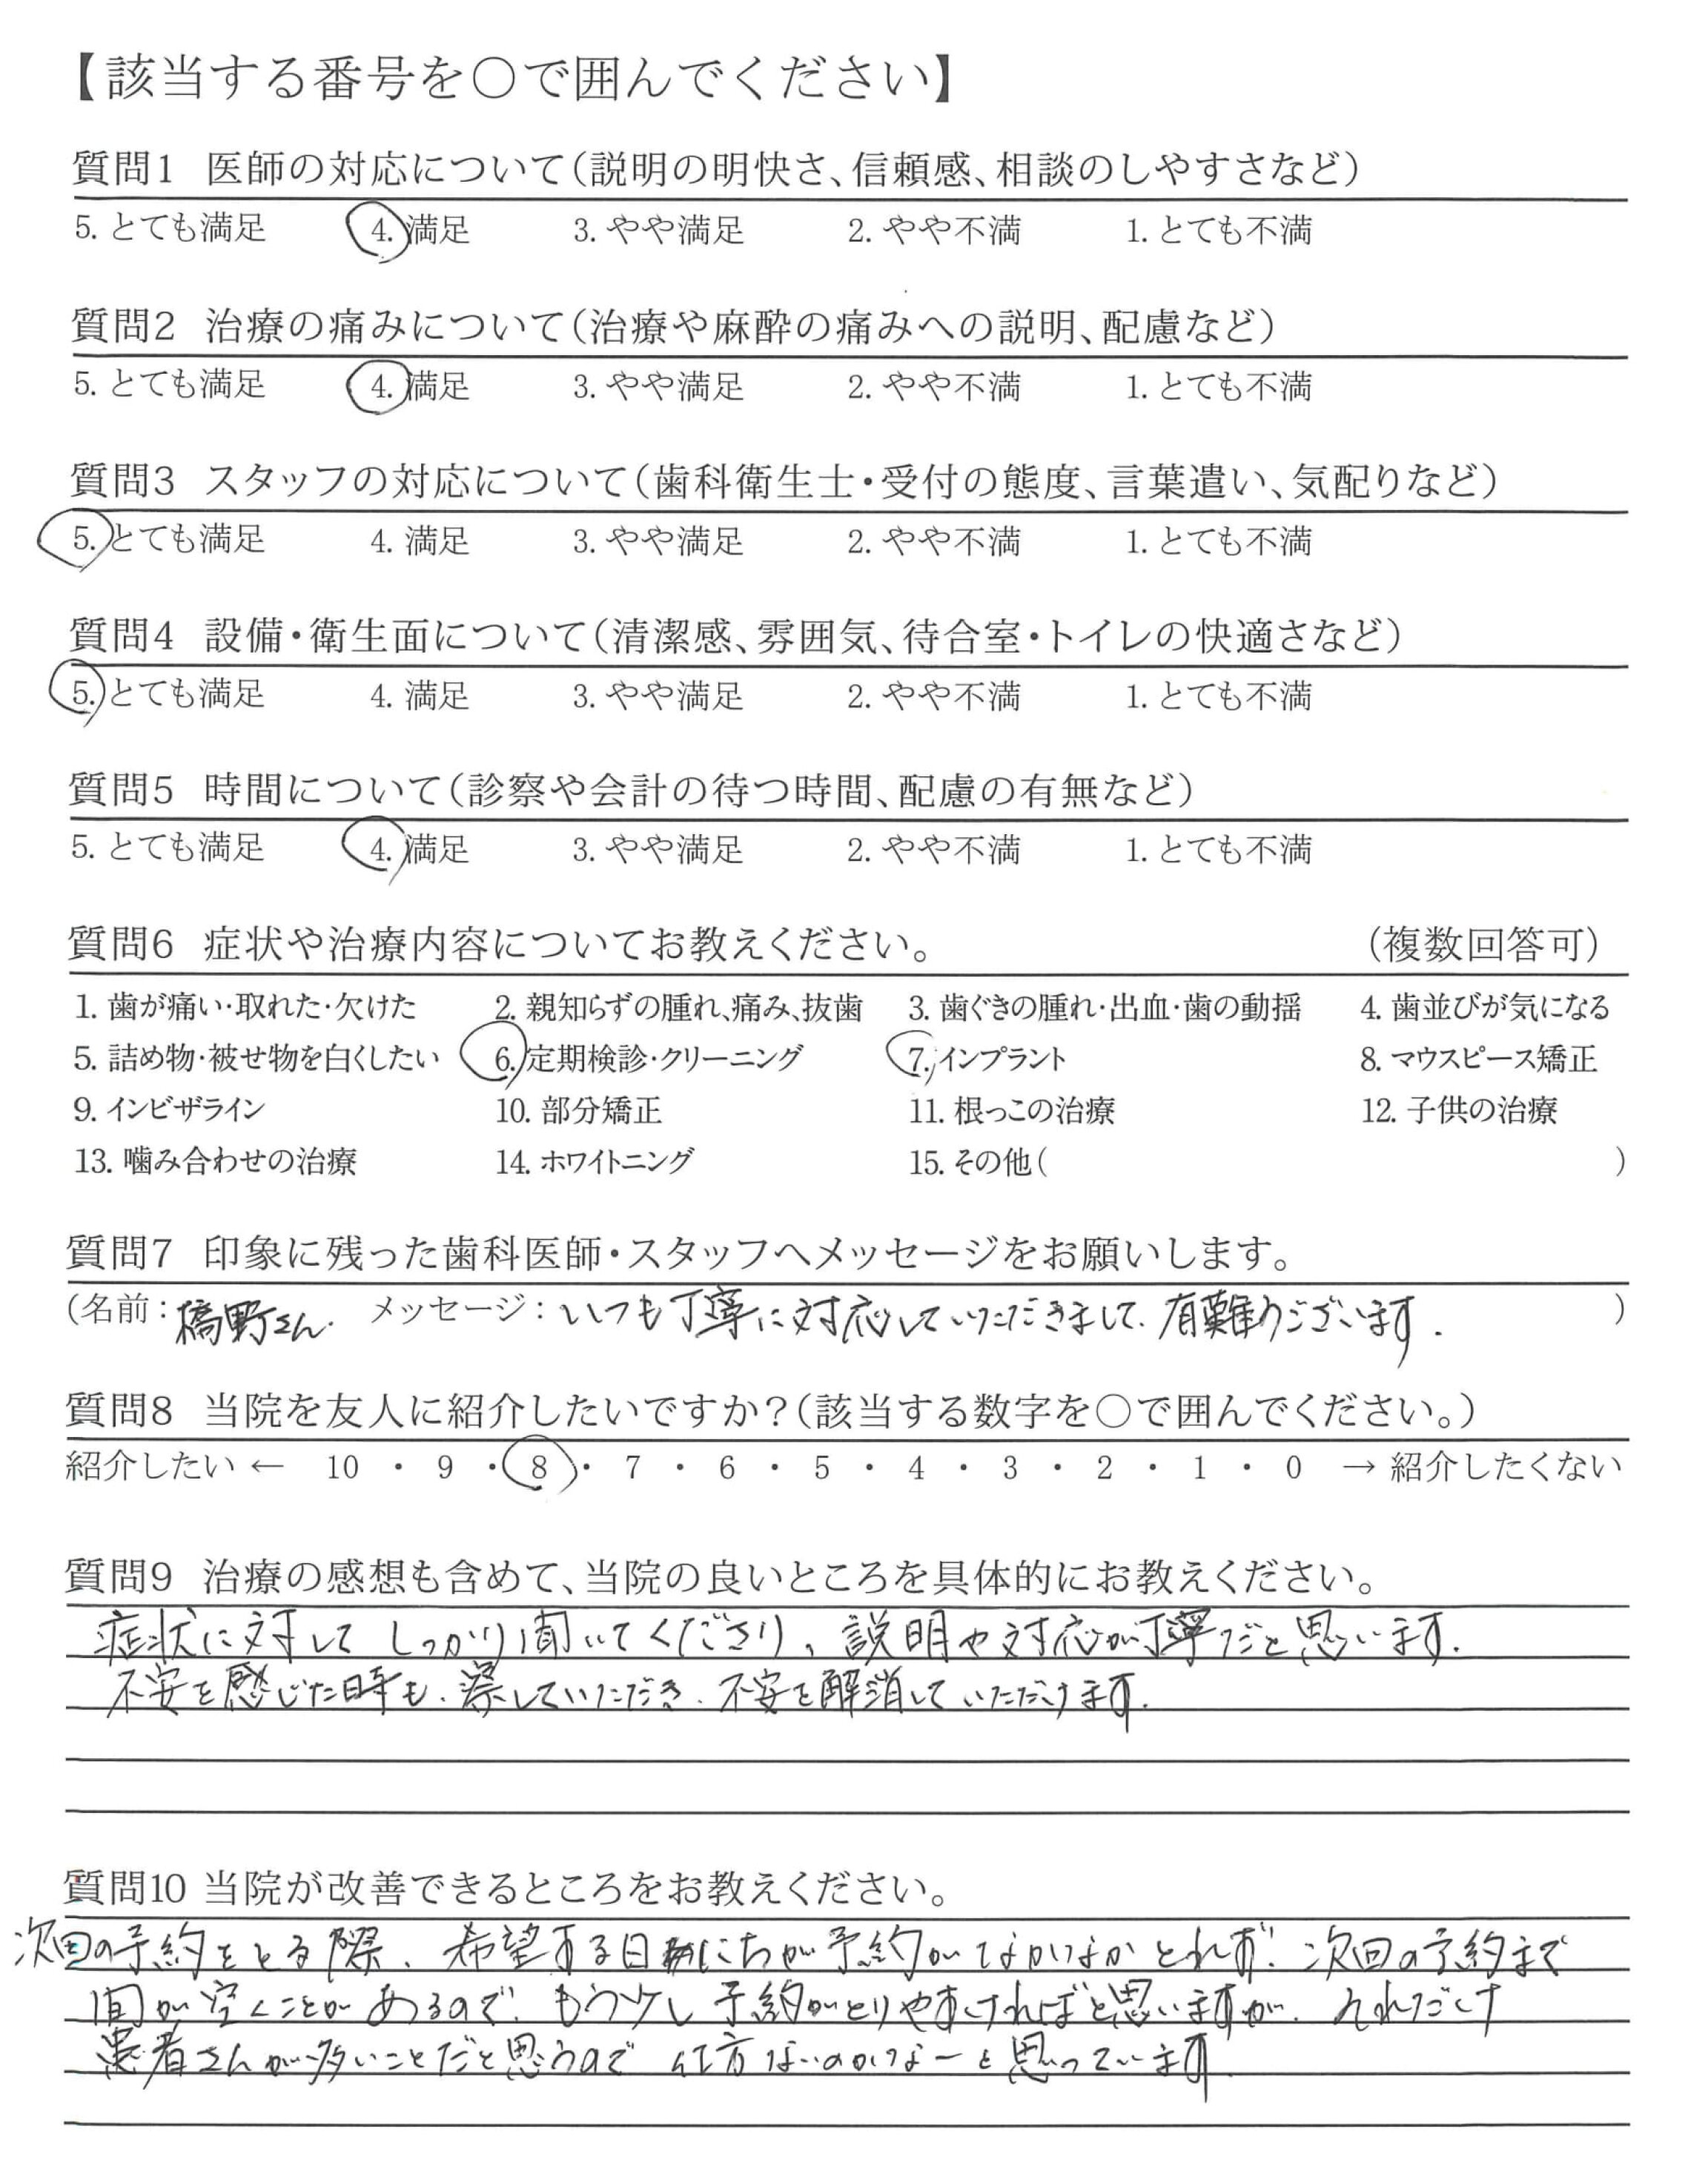 【該当する番号を〇で囲んでください】
質問1 医師の対応について(説明の明快さ、信頼感、相談のしやすさなど)
5. とても満足 4. 満足 3. やや満足 2. やや不満 1. とても不満
質問2 治療の痛みについて(治療や麻酔の痛みへの説明、配慮など)
5. とても満足 4. 満足 3. やや満足 2. やや不満 1. とても不満
質問3 スタッフの対応について(歯科衛生士・受付の態度、言葉遣い、気配りなど)
5. とても満足 4. 満足 3. やや満足 2. やや不満 1. とても不満
質問4 設備・衛生面について(清潔感、雰囲気、待合室・トイレの快適さなど)
5. とても満足 4. 満足 3. やや満足 2. やや不満 1. とても不満
質問5 時間について(診察や会計の待つ時間、配慮の有無など)
5. とても満足 4. 満足 3. やや満足 2. やや不満 1. とても不満
質問6 症状や治療内容についてお教えください。 (複数回答可)
1. 歯が痛い・取れた・欠けた 2. 親知らずの腫れ、痛み、抜歯 3. 歯ぐきの腫れ・出血・歯の動揺 4. 歯並びが気になる
5. 詰め物・被せ物を白くしたい 6. 定期検診・クリーニング 7. インプラント 8. マウスピース矯正
9. インビザライン 10. 部分矯正 11. 根っこの治療 12. 子供の治療
13. 噛み合わせの治療 14. ホワイトニング 15. その他( )
質問7 印象に残った歯科医師・スタッフへメッセージをお願いします。
(名前:橋野さん. メッセージ:いつも丁寧に対応していただきまして、有難うございます. )
質問8 当院を友人に紹介したいですか?(該当する数字を〇で囲んでください。)
紹介したい ← 10 ・ 9 ・ 8 ・ 7 ・ 6 ・ 5 ・ 4 ・ 3 ・ 2 ・ 1 ・ 0 → 紹介したくない
質問9 治療の感想も含めて、当院の良いところを具体的にお教えください。
症状に対して しっかり聞いてくださり、説明や対応が丁寧だと思います.
不安を感じた時も、察していただき、不安を解消していただけます.
質問10 当院が改善できるところをお教えください。
次回の予約をとる際、希望する日にちが予約がなかなかとれず、次回の予約まで
間が空くことがあるので、もう少し予約がとりやすければと思いますが、それだけ
患者さんが多いことだと思うので 仕方ないのかなーと思っています.